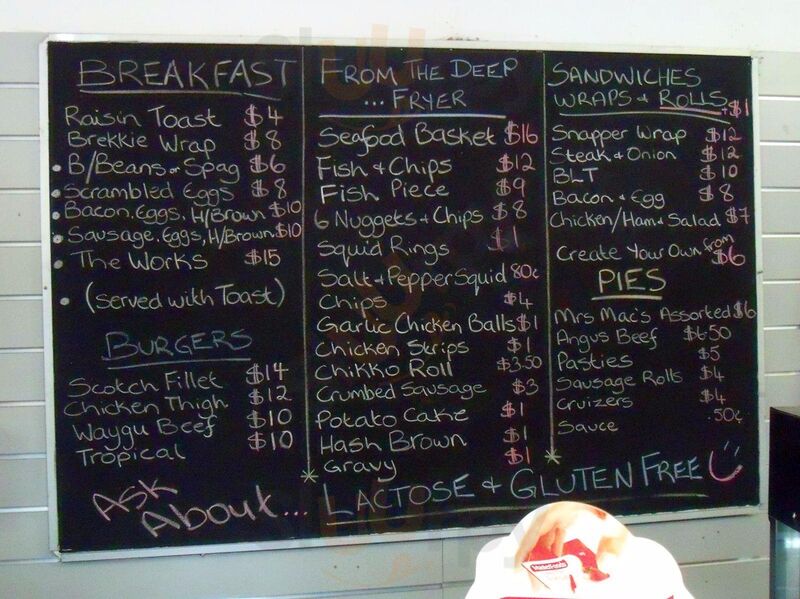 BREAKFAST
Raisin Toast $4
Brekkie Wrap $8
• B/Beans or Spag $6
• Scrambled Eggs $8
• Bacon, Eggs, H/Brown $10
• Sausage, Eggs, H/Brown $10
• The Works $15
• (Served with Toast)
BURGERS
Scotch Fillet $14
Chicken Thigh $12
Waygu Beef $10
Tropical $10
FROM THE DEEP
... FRYER
Seafood Basket $16
Fish & Chips $12
Fish Piece $9
6 Nuggets & Chips $8
Squid Rings $1
Salt & Pepper Squid 80c
Chips $4
Garlic Chicken Balls $1
Chicken Strips $1
Chikko Roll $3.50
Crumbed Sausage $3
Potato Cake $1
Hash Brown $1
Gravy $1
SANDWICHES
WRAPS & ROLLS +$1
Snapper Wrap $12
Steak & Onion $12
BLT $10
Bacon & Egg $8
Chicken/Ham & Salad $7
Create Your Own from $6
PIES
Mrs Mac's Assorted $6
Angus Beef $6.50
Pasties $5
Sausage Rolls $4
Cruizers $4
Sauce .50c
ASK
About...
* LACTOSE & GLUTEN FREE *